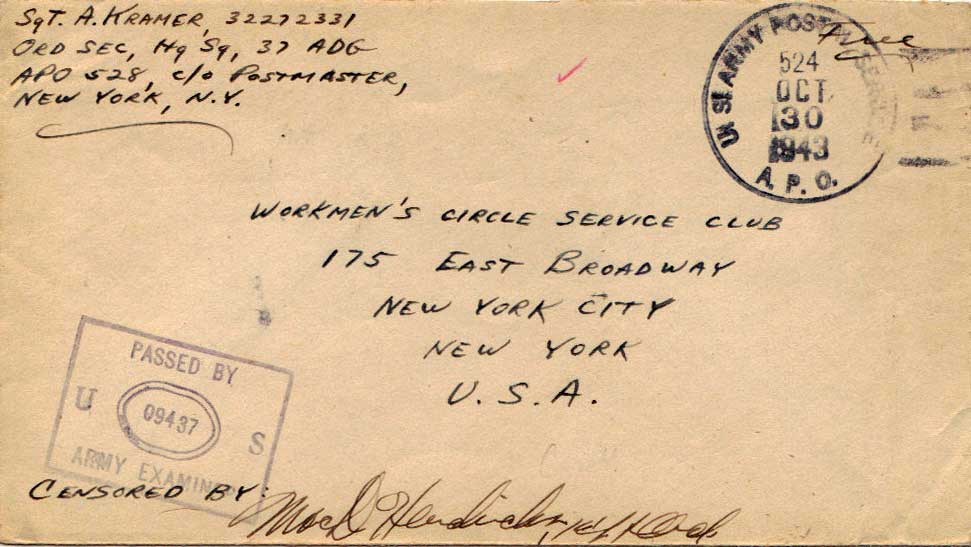 Sgt. A. Kramer, 32272331
Ord Sec, Hq Sq, 37 ADG
APO 528, c/o Postmaster,
New York, N.Y.
Free
U.S. ARMY POSTAL SERVICE
524
OCT
30
1943
A. P. O.
Workmen's Circle Service Club
175 East Broadway
New York City
New York
U. S. A.
PASSED BY
U 09437 S
ARMY EXAMINER
Censored by: